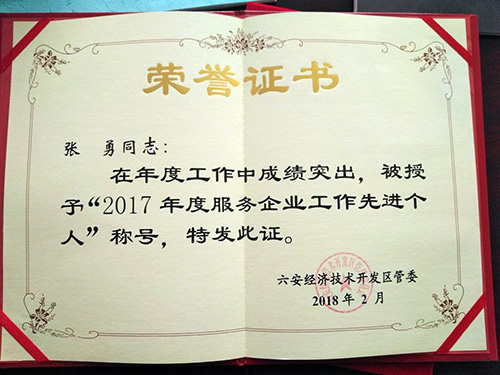 荣誉证书
张 勇同志：
在年度工作中成绩突出，被授
予“2017 年度服务企业工作先进个
人”称号，特发此证。
六安经济技术开发区管委
2018 年 2 月